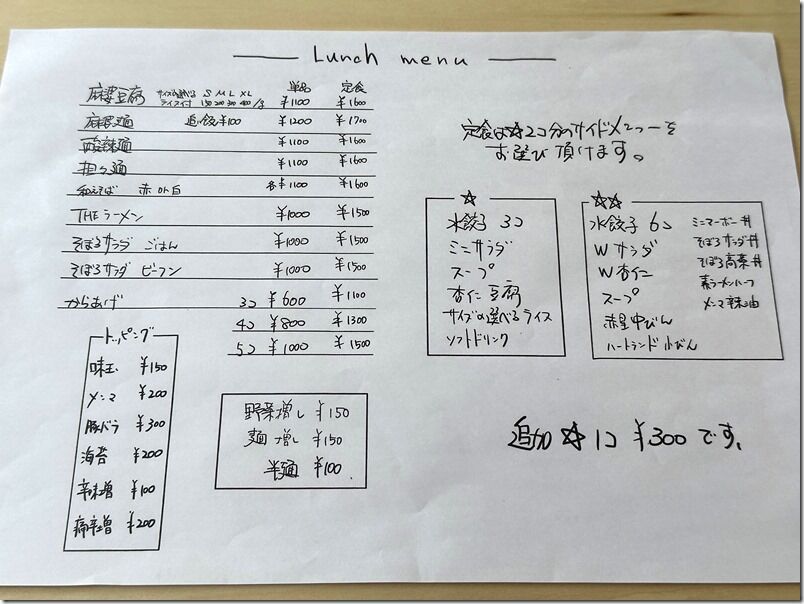 Lunch menu
麻婆豆腐 サイズが選べる S M L XL 単品 定食
ライス付 150 200 300 400/g ¥1100 ¥1600
麻婆麺 追い飯¥100 ¥1200 ¥1700
酸辣麺 ¥1100 ¥1600
担々麺 ¥1100 ¥1600
和えそば 赤 or 白 各¥1100 ¥1600
THEラーメン ¥1000 ¥1500
そぼろサラダ ごはん ¥1000 ¥1500
そぼろサラダ ビーフン ¥1000 ¥1500
からあげ 3コ ¥600 ¥1100
4コ ¥800 ¥1300
5コ ¥1000 ¥1500
トッピング
味玉 ¥150
メンマ ¥200
豚バラ ¥300
海苔 ¥200
辛味増 ¥100
痺辛増 ¥200
野菜増し ¥150
麺増し ¥150
半麺 ¥100
定食は☆2コ分のサイドメニューを
お選び頂けます。
☆
水餃子 3コ
ミニサラダ
スープ
杏仁豆腐
サイズの選べるライス
ソフトドリンク
☆☆
水餃子 6コ
Wサラダ
W杏仁
スープ
赤星中びん
ハートランド小びん
ミニマーボー丼
そぼろサラダ丼
そぼろ高菜丼
素ラーメンハーフ
メンマ辣油
追加☆1コ ¥300です。